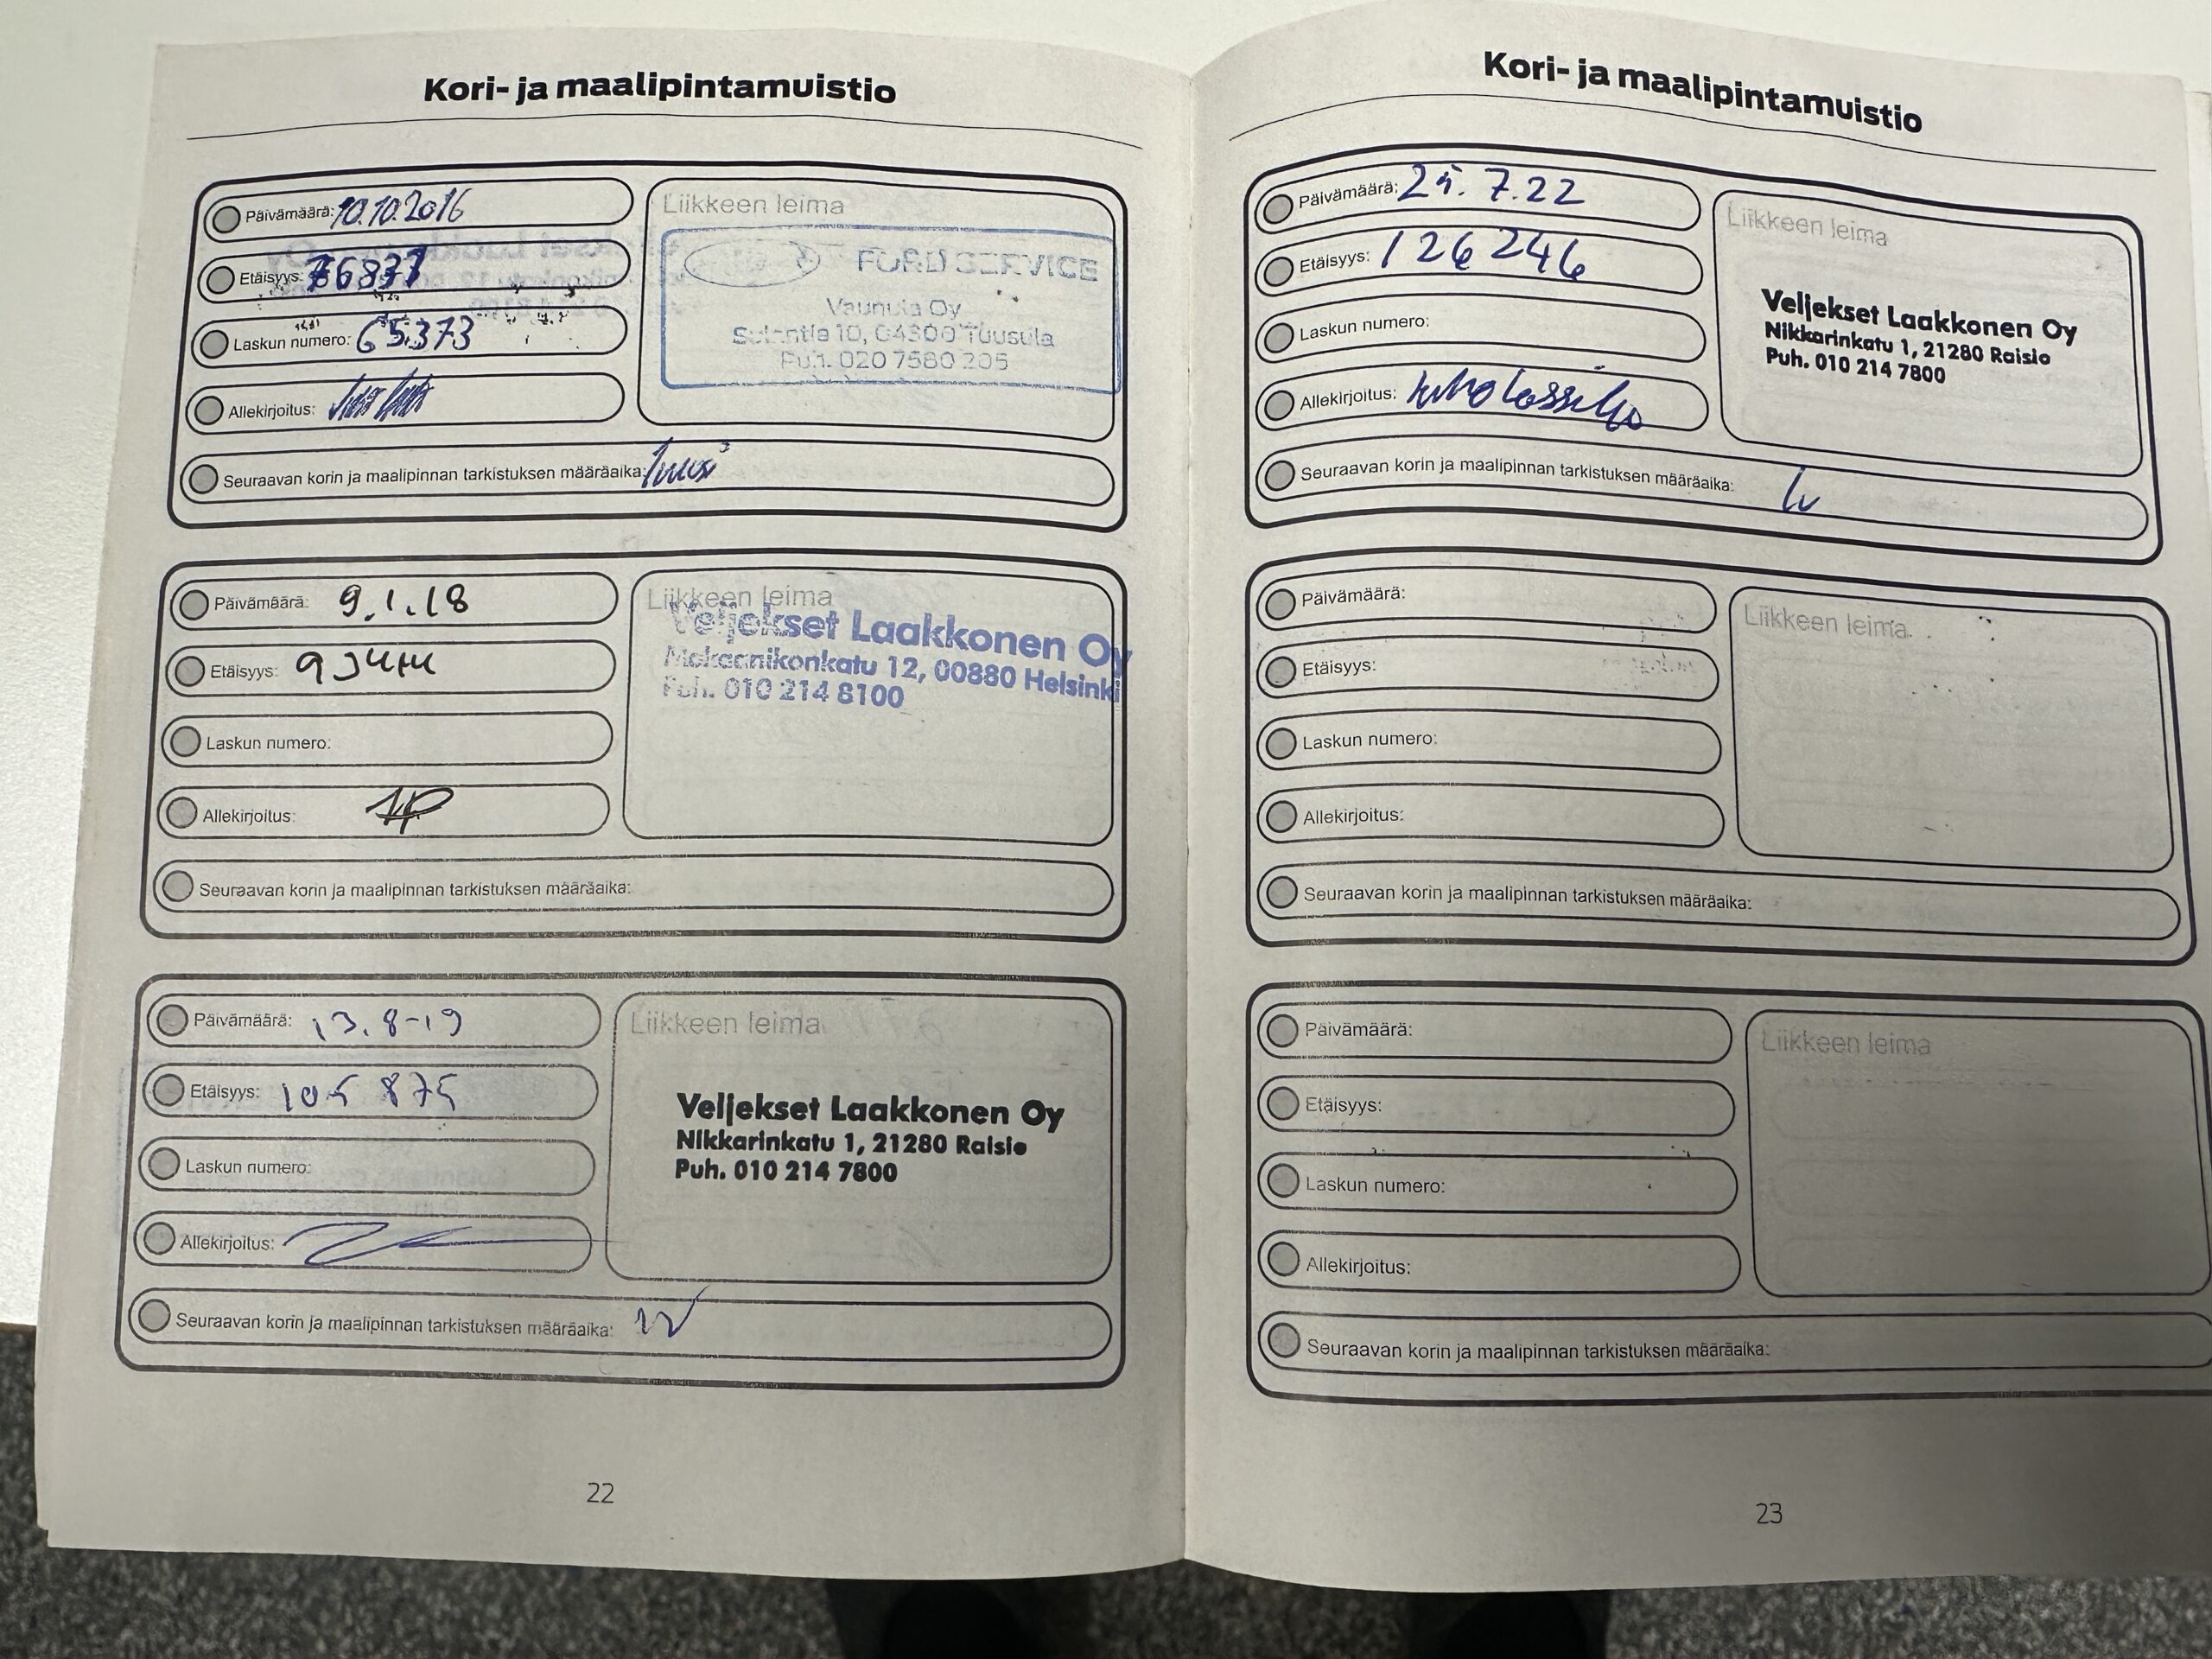 Kori- ja maalipintamuistio
Päivämäärä: 10.10.2016
Etäisyys: 76837
Laskun numero: 65373
Allekirjoitus:
Liikkeen leima
FORD SERVICE
Vaunula Oy
Sulantie 10, 04300 Tuusula
Puh. 020 7580 205
Seuraavan korin ja maalipinnan tarkistuksen määräaika:
Päivämäärä: 9.1.18
Etäisyys:
Laskun numero:
Allekirjoitus:
Liikkeen leima
Veljekset Laakkonen Oy
Mekaanikonkatu 12, 00880 Helsinki
Puh. 010 214 8100
Seuraavan korin ja maalipinnan tarkistuksen määräaika:
Päivämäärä: 13.8-19
Etäisyys: 105 875
Laskun numero:
Allekirjoitus:
Liikkeen leima
Veljekset Laakkonen Oy
Nikkarinkatu 1, 21280 Raisio
Puh. 010 214 7800
Seuraavan korin ja maalipinnan tarkistuksen määräaika:
22
Kori- ja maalipintamuistio
Päivämäärä: 25.7.22
Etäisyys: 126246
Laskun numero:
Allekirjoitus:
Liikkeen leima
Veljekset Laakkonen Oy
Nikkarinkatu 1, 21280 Raisio
Puh. 010 214 7800
Seuraavan korin ja maalipinnan tarkistuksen määräaika:
Päivämäärä:
Etäisyys:
Laskun numero:
Allekirjoitus:
Liikkeen leima
Seuraavan korin ja maalipinnan tarkistuksen määräaika:
Päivämäärä:
Etäisyys:
Laskun numero:
Allekirjoitus:
Liikkeen leima
Seuraavan korin ja maalipinnan tarkistuksen määräaika:
23